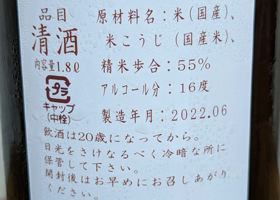 品目
清酒
内容量1.8ℓ
プラ
キャップ
(中栓)
原材料名:米(国産)、
米こうじ(国産米)、
精米歩合:55%
アルコール分:16度
製造年月:2022.06
飲酒は20歳になってから。
日光をさけなるべく冷暗な所に
保管して下さい。
開封後はお早めにお召しあがり
ください。